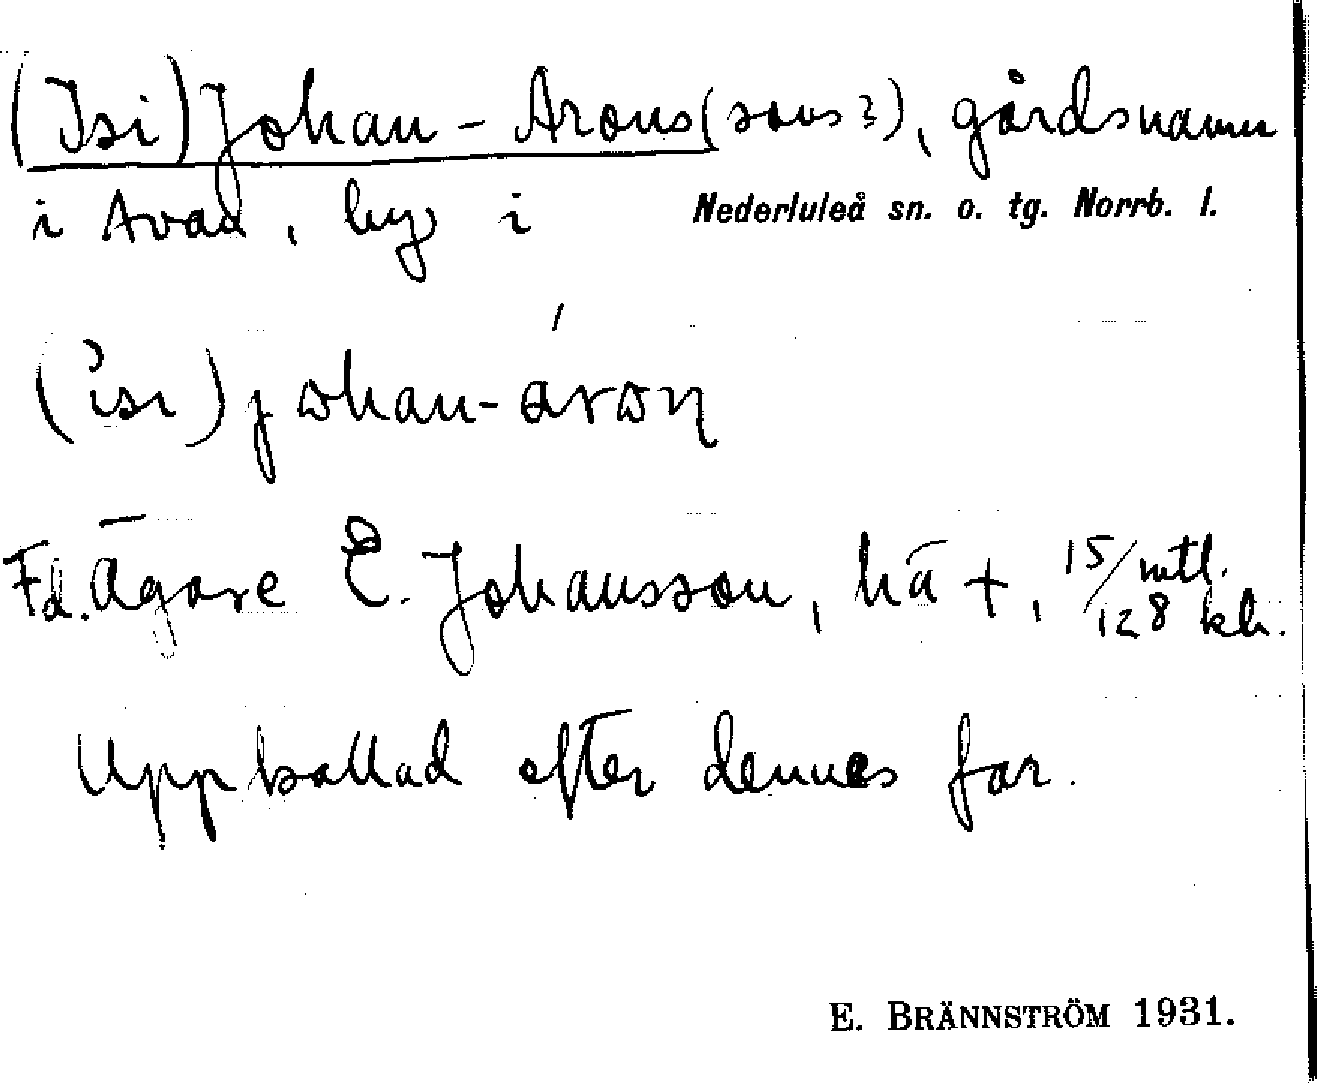 (Isi)Johan-Arons(sons?), gårdsnamn
i Avan, by i Nederluleå sn. o. tg. Norrb. l.
(isi)johan-áron
Fd. Ägare E. Johansson, hä +, 15/128 mtl. kh.
Uppkallad efter dennes far.
E. BRÄNNSTRÖM 1931.